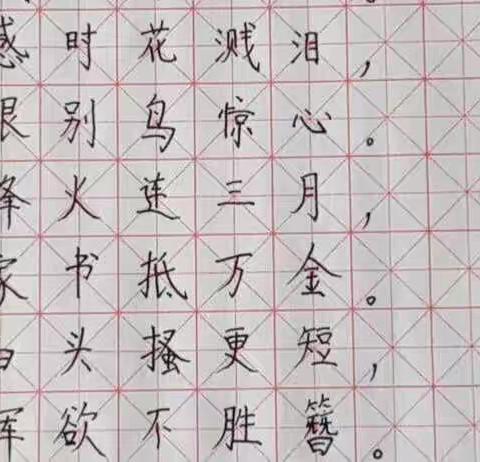 感时花溅泪，
恨别鸟惊心。
烽火连三月，
家书抵万金。
白头搔更短，
浑欲不胜簪。